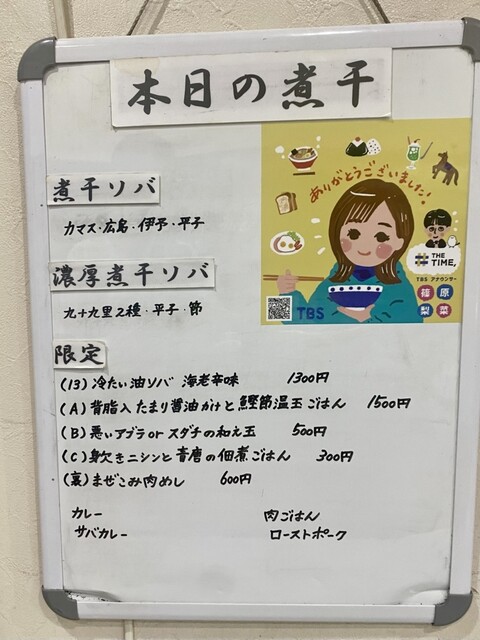 本日の煮干
煮干ソバ
カマス・広島・伊予・平子
濃厚煮干ソバ
九十九里2種・平子・節
限定
(13) 冷たい油ソバ 海老辛味 1300円
(A) 背脂入 たまり醤油かけと鰹節温玉ごはん 1500円
(B) 悪いアブラ or スダチの和え玉 500円
(C) 身欠きニシンと青唐の佃煮ごはん 300円
(裏) まぜこみ肉めし 600円
カレー 肉ごはん
サバカレー ローストポーク
ありがとうございました!
THE TIME,
TBS アナウンサー
篠原
梨菜
TBS